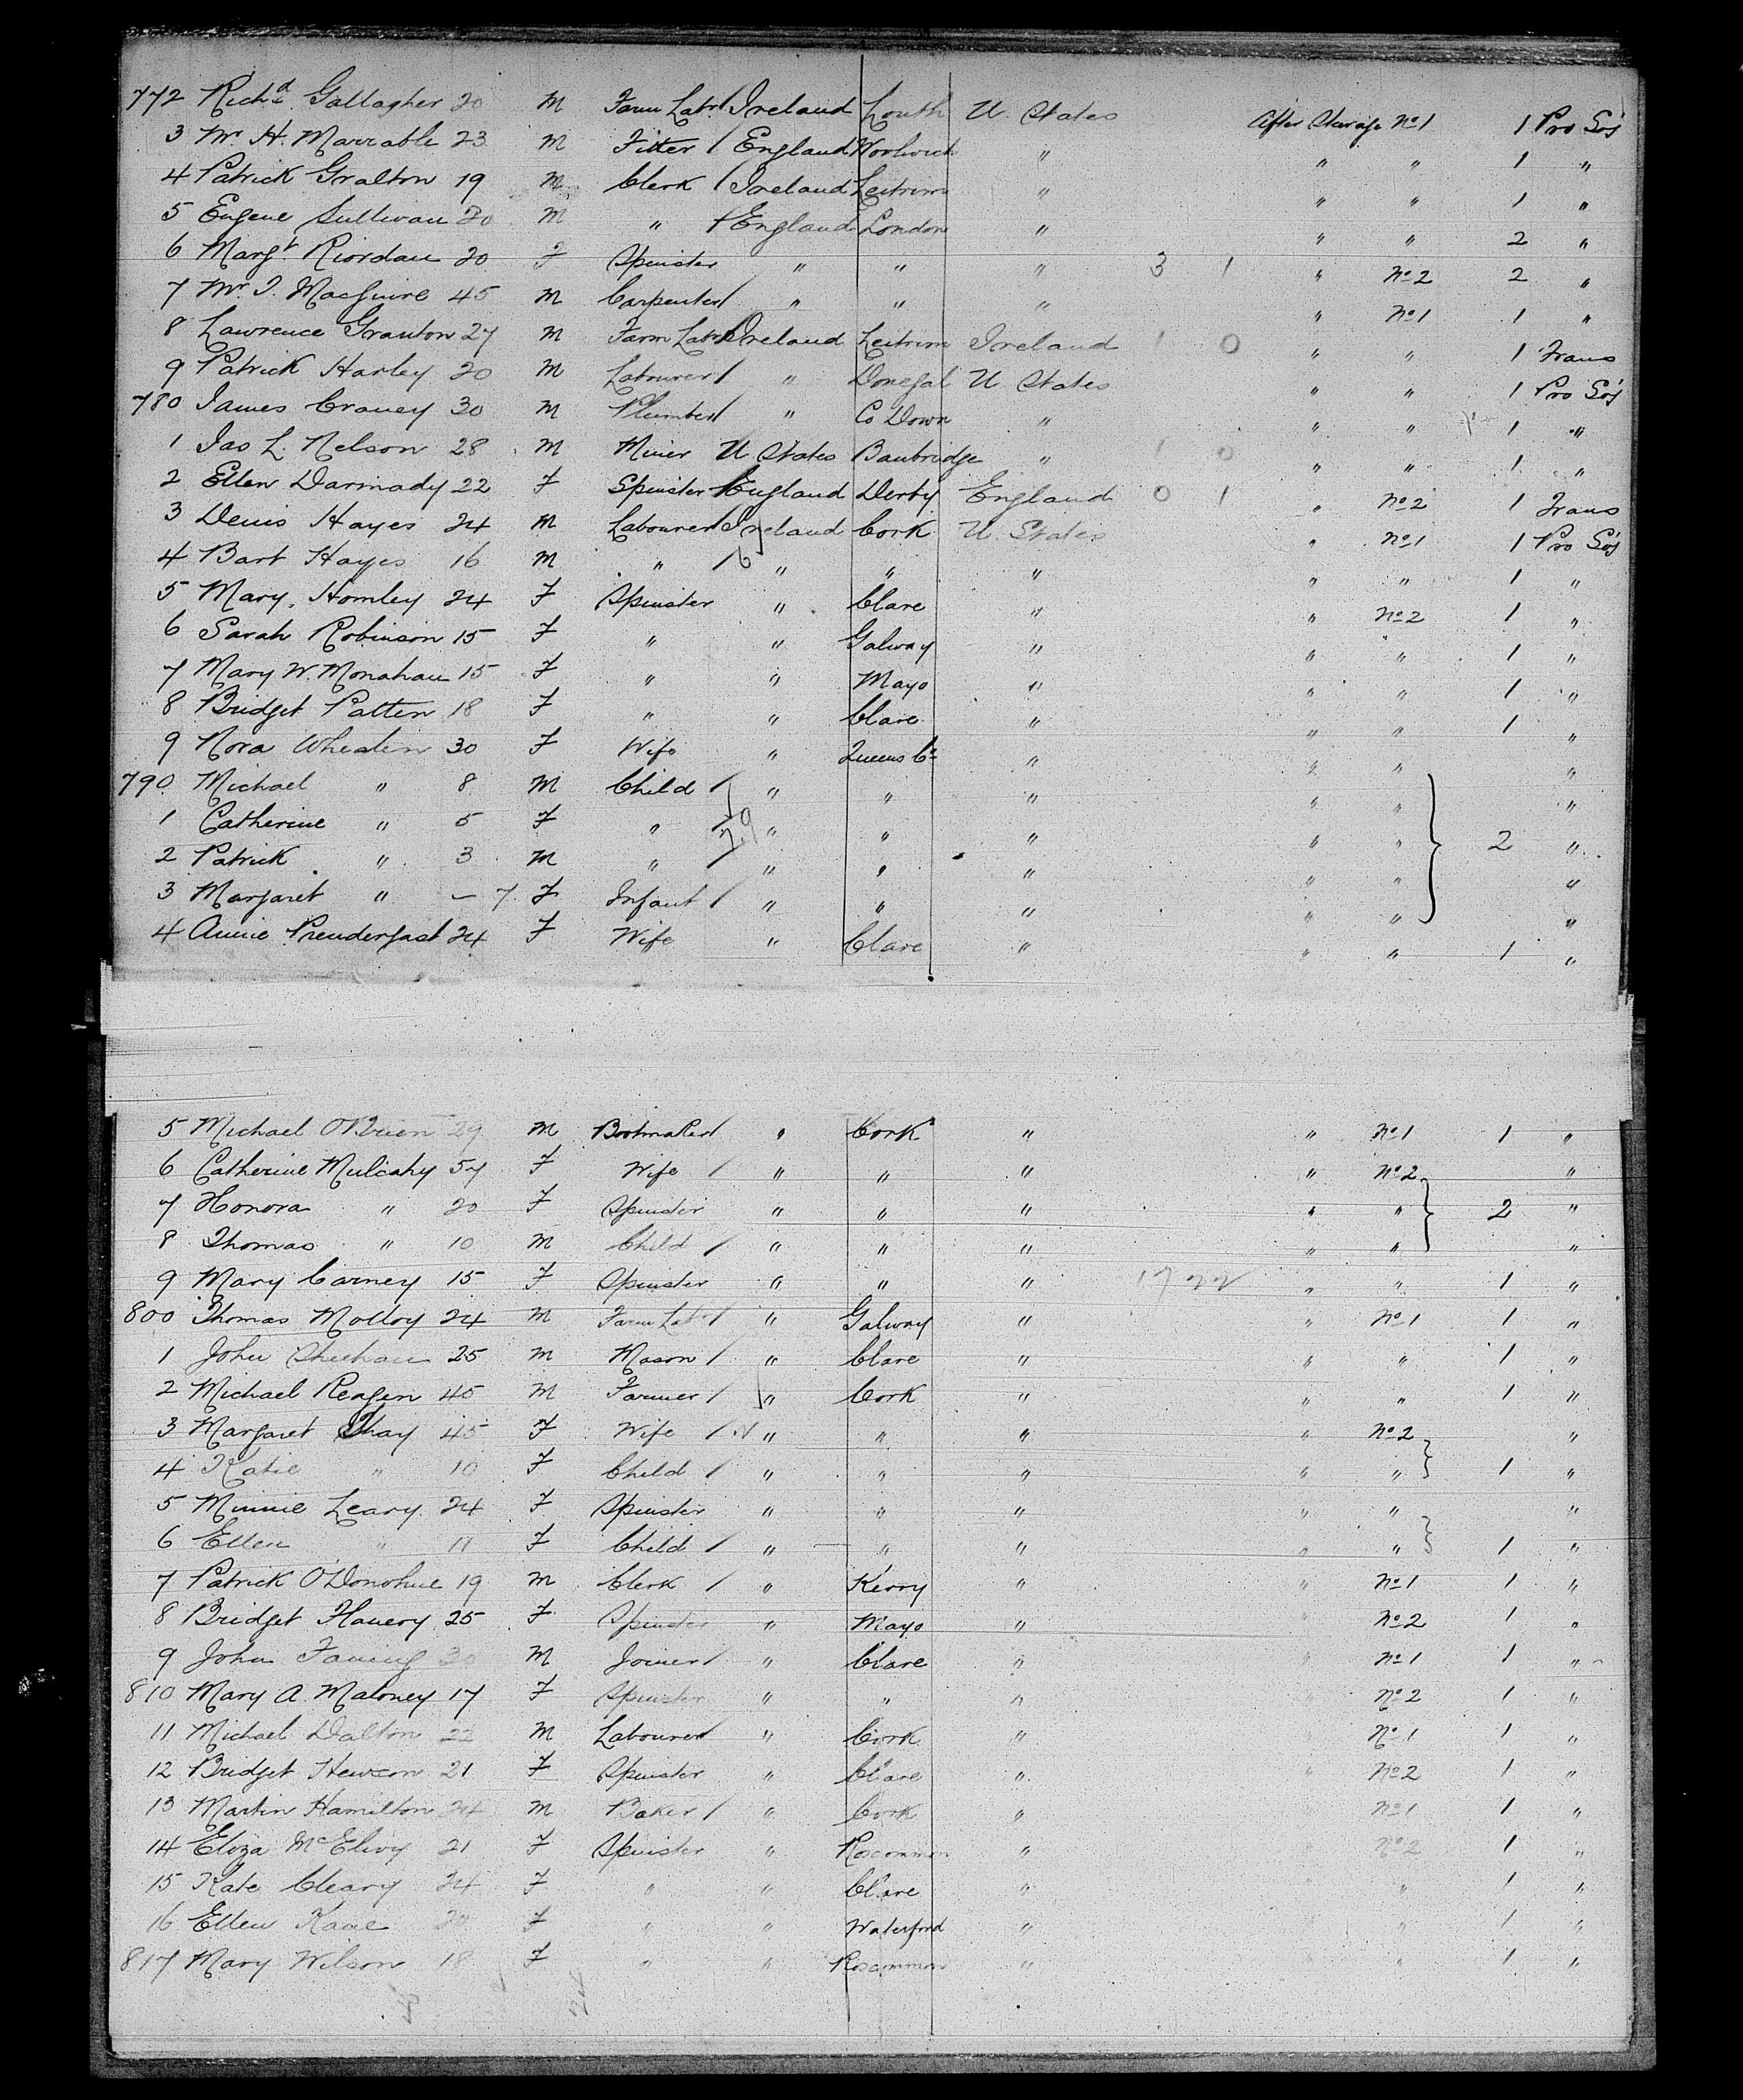 772 Richd. Gallagher 20 M Farm Labr / Ireland Louth U. States After Steerage No 1 1 Pro Soj
3 Wm. H. Marrable 23 M Fitter / England Woolwich " " " 1 "
4 Patrick Gralton 19 M Clerk / Ireland Leitrim " " " 1 "
5 Eugene Sullivan 20 M " / England London " " " 2 "
6 Margt. Riordan 20 F Spinster " " " 3 1 " No 2 2 "
7 Wm. J. MacGuire 45 M Carpenter / " " " " No 1 1 "
8 Lawrence Granton 27 M Farm Labr Ireland Leitrim Ireland 1 0 " " 1 Trans
9 Patrick Harley 20 M Labourer / " Donegal U States " " 1 Pro Soj
780 James Craney 30 M Plumber / " Co Down " " " 1 "
1 Jas L. Nelson 28 M Miner U States Banbridge " 1 0 " " 1 "
2 Ellen Darmady 22 F Spinster England Derby England 0 1 " No 2 1 Trans
3 Denis Hayes 24 M Labourer / Ireland Cork U. States " No 1 1 Pro Soj
4 Bart Hayes 16 M " / 6 " " " " " 1 "
5 Mary Homley 24 F Spinster " Clare " " No 2 1 "
6 Sarah Robinson 15 F " " Galway " " " 1 "
7 Mary W. Monahan 15 F " " Mayo " " " 1 "
8 Bridget Patten 18 F " " Clare " " " 1 "
9 Nora Whealen 30 F Wife " Queens Co " " " "
790 Michael " 8 M Child / " " " " " "
1 Catherine " 5 F " / " " " " " 2 "
2 Patrick " 3 M " " " " " " "
3 Margaret " – 7 F Infant / " " " " " "
4 Annie Prenderfast 24 F Wife " Clare " " " 1 "
5 Michael O'Brien 29 M Bootmaker / " Cork " " No 1 1 "
6 Catherine Mulcahy 57 F Wife / " " " " No 2 "
7 Honora " 20 F Spinster " " " " " 2 "
8 Thomas " 10 M Child / " " " " " "
9 Mary Carney 15 F Spinster " " " 1722 " " 1 "
800 Thomas Molloy 24 M Farm Labr / " Galway " " No 1 1 "
1 John Sheehan 25 M Mason / " Clare " " " 1 "
2 Michael Reagen 45 M Farmer / " Cork " " " 1 "
3 Margaret Shay 45 F Wife / " " " " No 2 "
4 Katie " 10 F Child / " " " " " 1 "
5 Minnie Leary 24 F Spinster " " " " " "
6 Ellen " 11 F Child / " " " " " 1 "
7 Patrick O'Donohue 19 M Clerk / " Kerry " " No 1 1 "
8 Bridget Flanery 25 F Spinster " Mayo " " No 2 1 "
9 John Faning 30 M Joiner / " Clare " " No 1 1 "
810 Mary A. Maloney 17 F Spinster " " " " No 2 1 "
11 Michael Dalton 22 M Labourer " Cork " " No 1 1 "
12 Bridget Hewson 21 F Spinster " Clare " " No 2 1 "
13 Martin Hamilton 24 M Baker / " Cork " " No 1 1 "
14 Eliza McElivy 21 F Spinster " Roscommon " " No 2 1 "
15 Kate Cleary 24 F " " Clare " " " 1 "
16 Ellen Kane F " " Waterford " " " 1 "
817 Mary Wilson 18 F " " Roscommon " " " 1 "